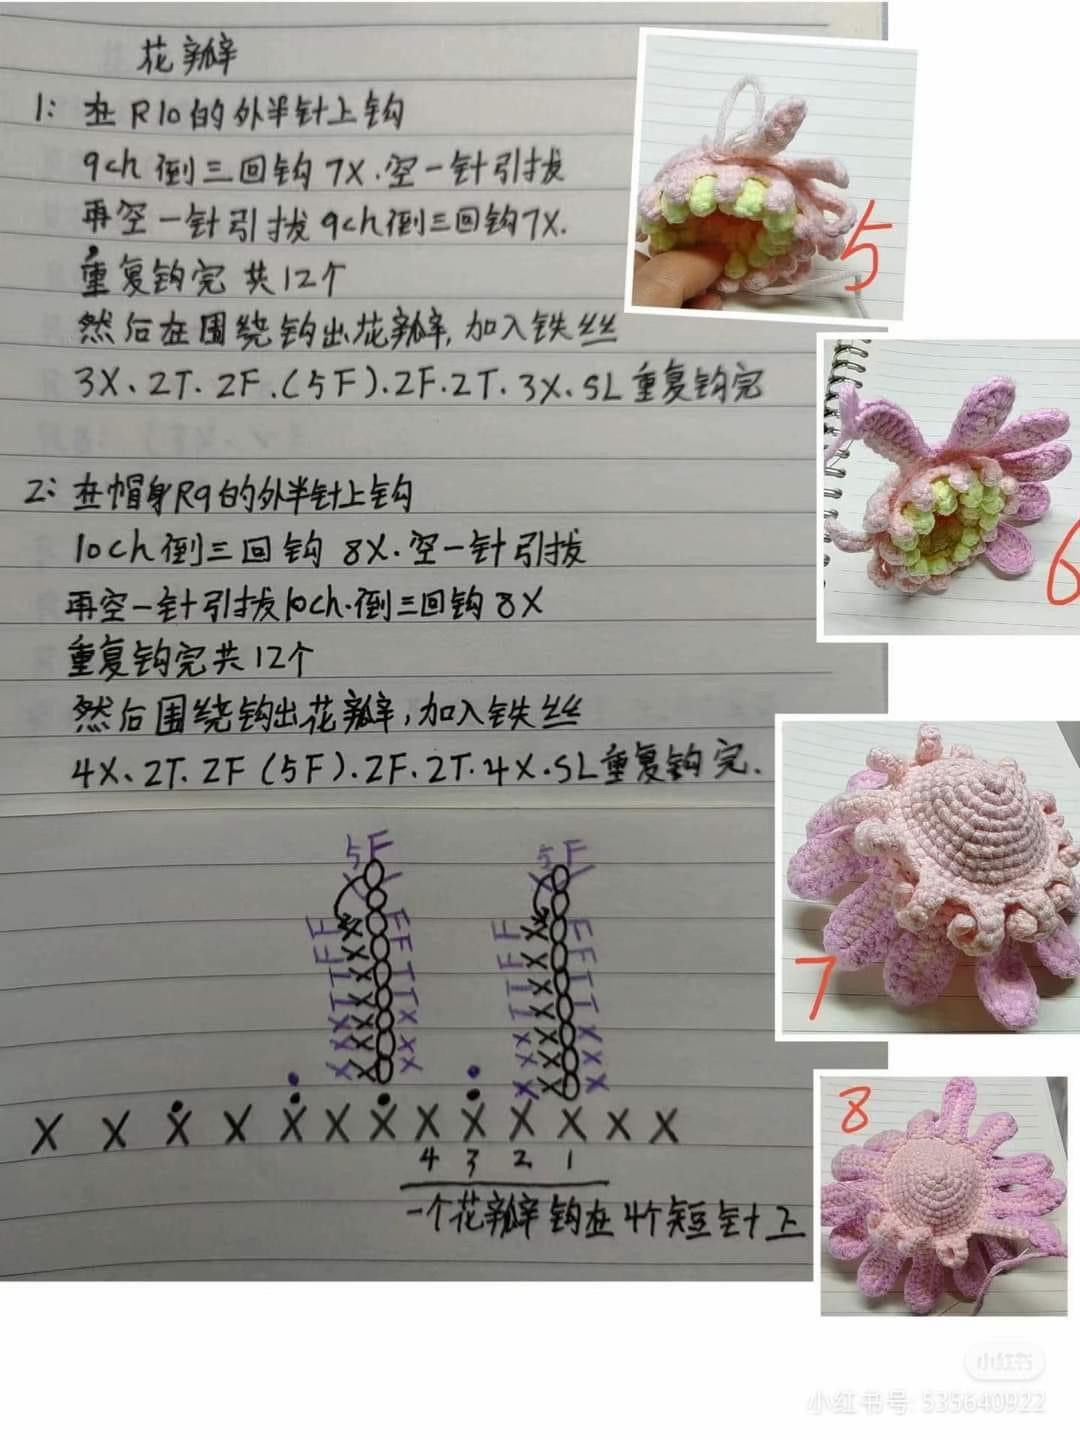 花瓣
1: 在R10的外半针上钩
9ch倒三回钩7X.空一针引拔
再空一针引拔9ch倒三回钩7X.
重复钩完 共12个
然后在围绕钩出花瓣,加入铁丝
3X、2T.2F.(5F).2F.2T.3X.SL重复钩完
2: 在帽身R9的外半针上钩
10ch倒三回钩 8X.空一针引拔
再空一针引拔10ch.倒三回钩8X
重复钩完共12个
然后围绕钩出花瓣,加入铁丝
4X、2T.2F(5F).2F.2T.4X.SL重复钩完.
5F 5F
F F F F
F F F F
T T T T
T T T T
X X X X
X X X X
X X X X
X X X X X X X X X X X X X
4 3 2 1
一个花瓣钩在4个短针上
5
6
7
8
小红书
小红书号: 535640922